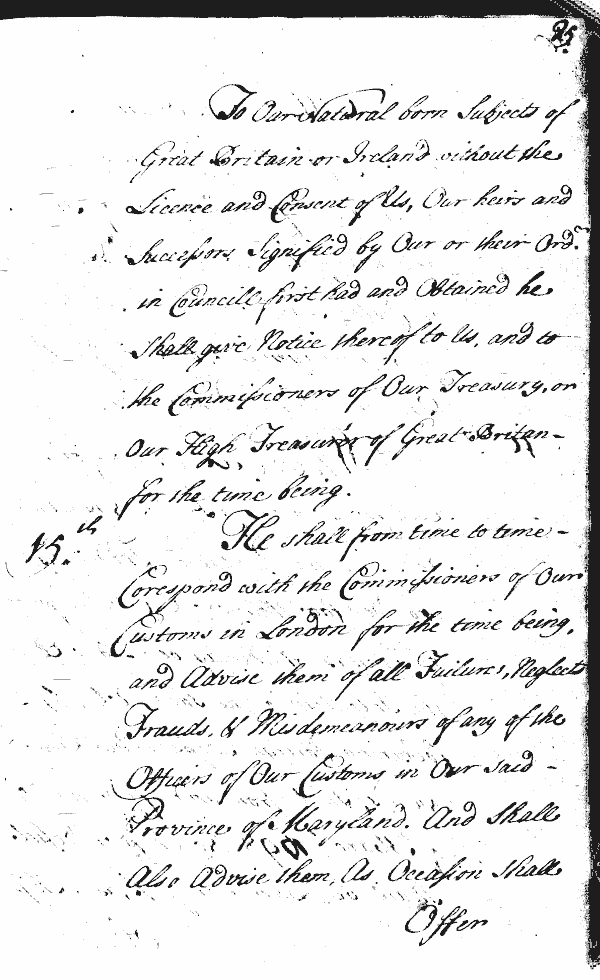 25.
To Our Natural born Subjects of
Great Britain or Ireland without the
Licence and Consent of Us, Our heirs and
Successors Signified by Our or their Ordr
in Councill first had and Obtained he
Shall give Notice thereof to Us, and to
the Commissioners of Our Treasury, or
Our High Treasurer of Great Britan-
for the time being.
15.th He shall from time to time-
Corespond with the Commissioners of Our
Customs in London for the time being,
and Advise them of all Failures, Neglects
Frauds, & Misdemeanours of any of the
Officers of Our Customs in Our said -
Province of Maryland. And Shall
Also Advise them, As Occasion Shall
Offer